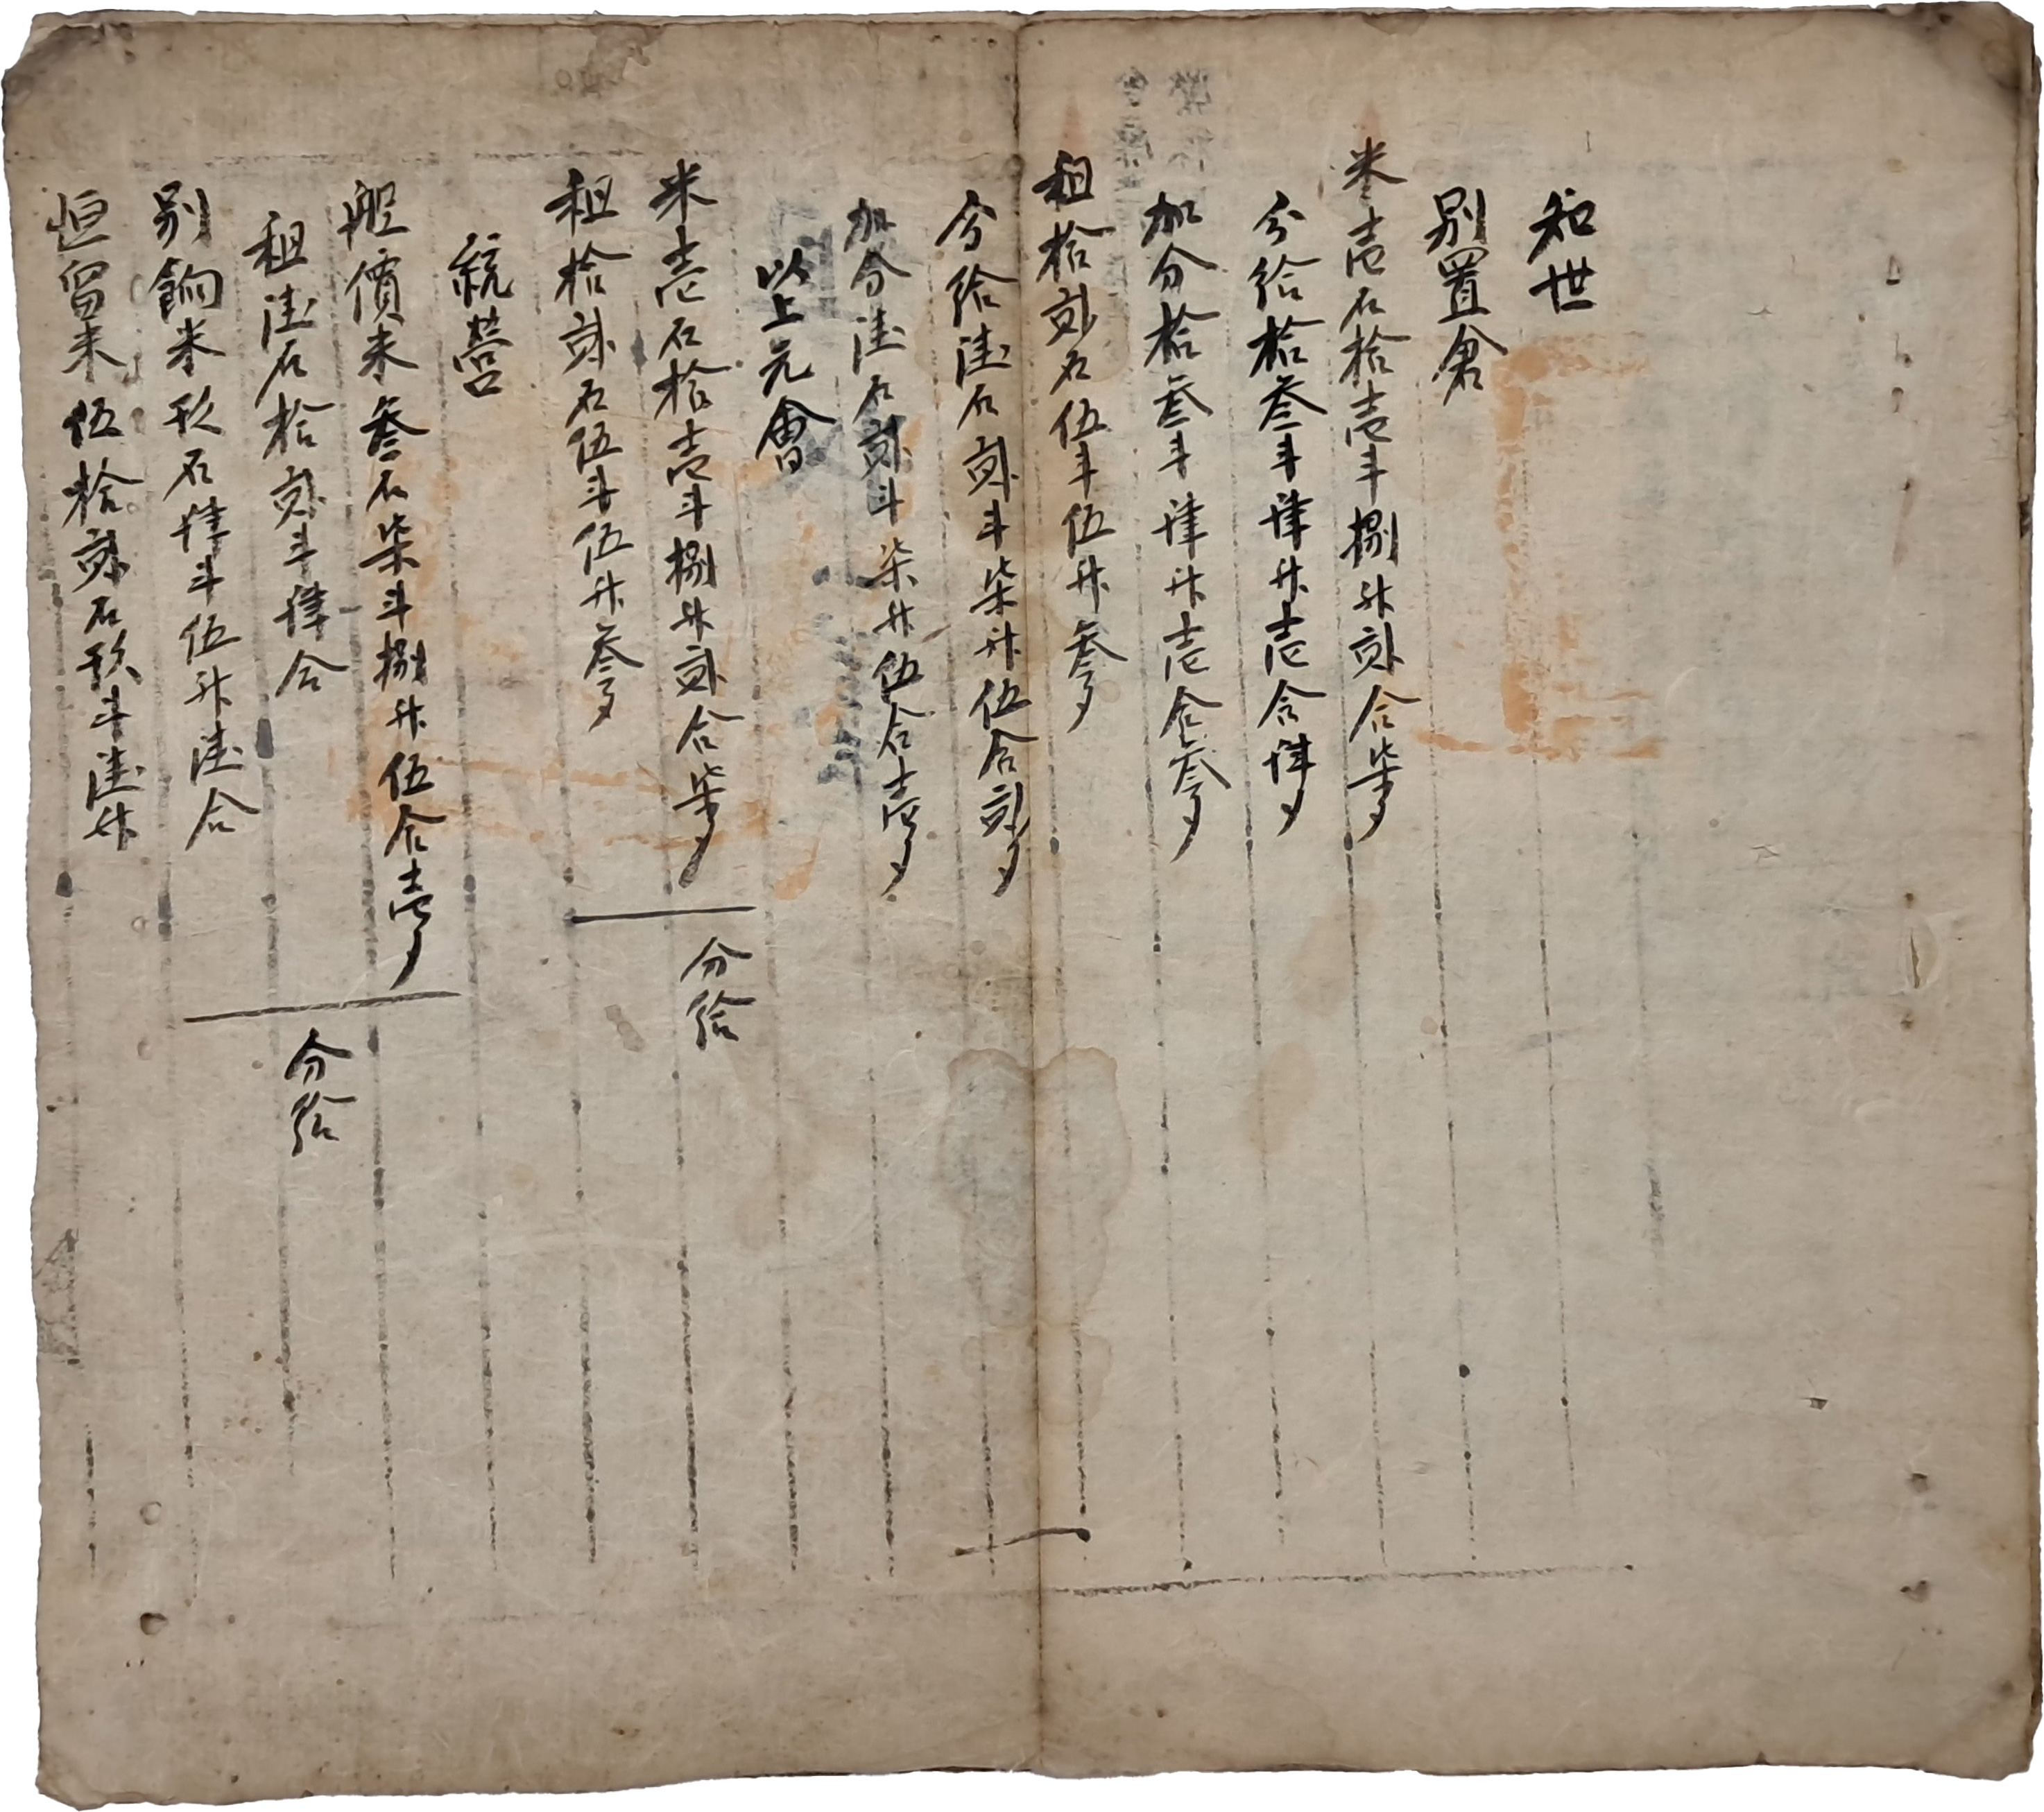 知世
別置倉
米壹石拾壹斗捌升貳合柒夕
分給拾叁斗肆升壹合肆夕
加分拾叁斗肆升壹合叁夕
租拾貳石伍斗伍升叁夕
分給陸石貳斗柒升伍合貳夕
加分陸石貳斗柒升伍合壹夕
以上元會
米壹石拾壹斗捌升貳合柒夕
租拾貳石伍斗伍升叁夕
分給
統營
舡價米叁石柒斗捌升伍合壹夕
租陸石拾貳斗肆合
分給
別餉米玖石肆斗伍升陸合
恒留米伍拾貳石玖斗陸升